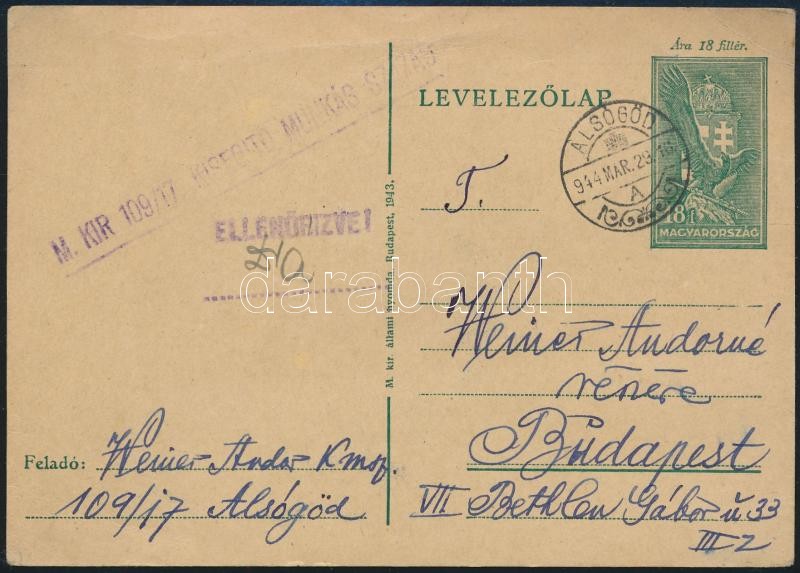 Ára 18 fillér.
LEVELEZŐLAP
ALSÓGÖD
944 MAR. 29. 16
A
18 f
MAGYARORSZÁG
M. KIR 109/17 KISEGITŐ MUNKÁS SZÁZAD
ELLENŐRIZVE!
darabanth
M. kir. állami nyomda, Budapest, 1943.
T.
Weiner Andorné
részére
Budapest
VII Bethlen Gábor u 33
III 2
Feladó: Weiner Andor Kmsz.
109/17 Alsógöd